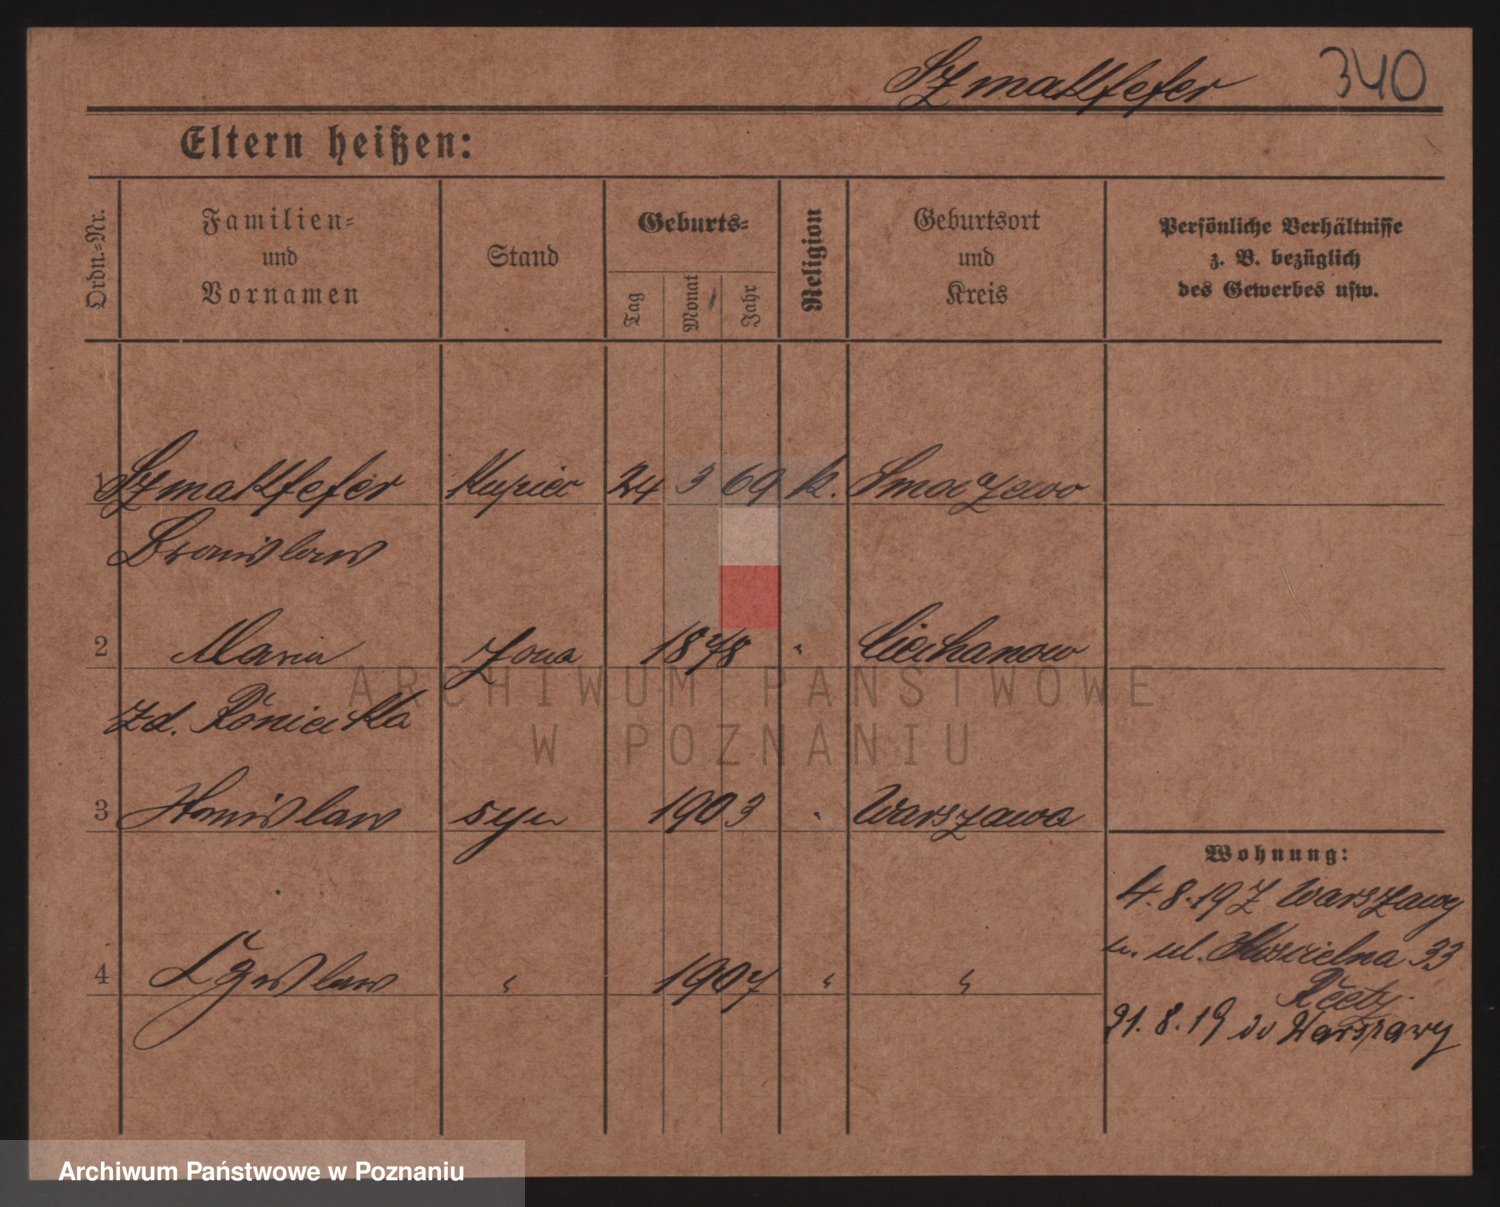 Szmalkfefer 340
Eltern heißen:
Ordn.-Nr.
Familien-
und
Vornamen
Stand
Geburts-
Tag
Monat
Jahr
Religion
Geburtsort
und
Kreis
Persönliche Verhältnisse
z. B. bezüglich
des Gewerbes usw.
1 Szmalkfefer Kupiec 24 3 69 k.
Bronislaw
2 Maria żona 1878 " Ciechanow
zd.
3 syn 1903 " Warszawa
4 " 1907 " "
Wohnung:
4.8.19 z Warszawy
ul. 33
21.8.19 do Warszawy
ARCHIWUM PAŃSTWOWE
W POZNANIU
Archiwum Państwowe w Poznaniu